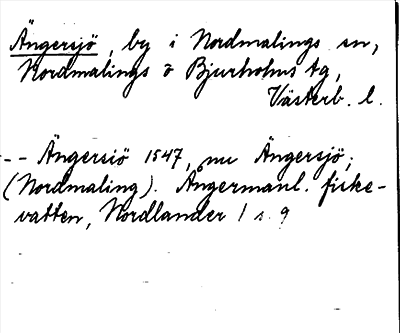 Ängersjö, by i Nordmalings sn,
Nordmalings o Bjurholms tg,
Västerb. l.
-- Ängersiö 1547, nu Ängersjö;
(Nordmaling). Ångermanl. fiske-
vatten, Nordlander 1 s. 9